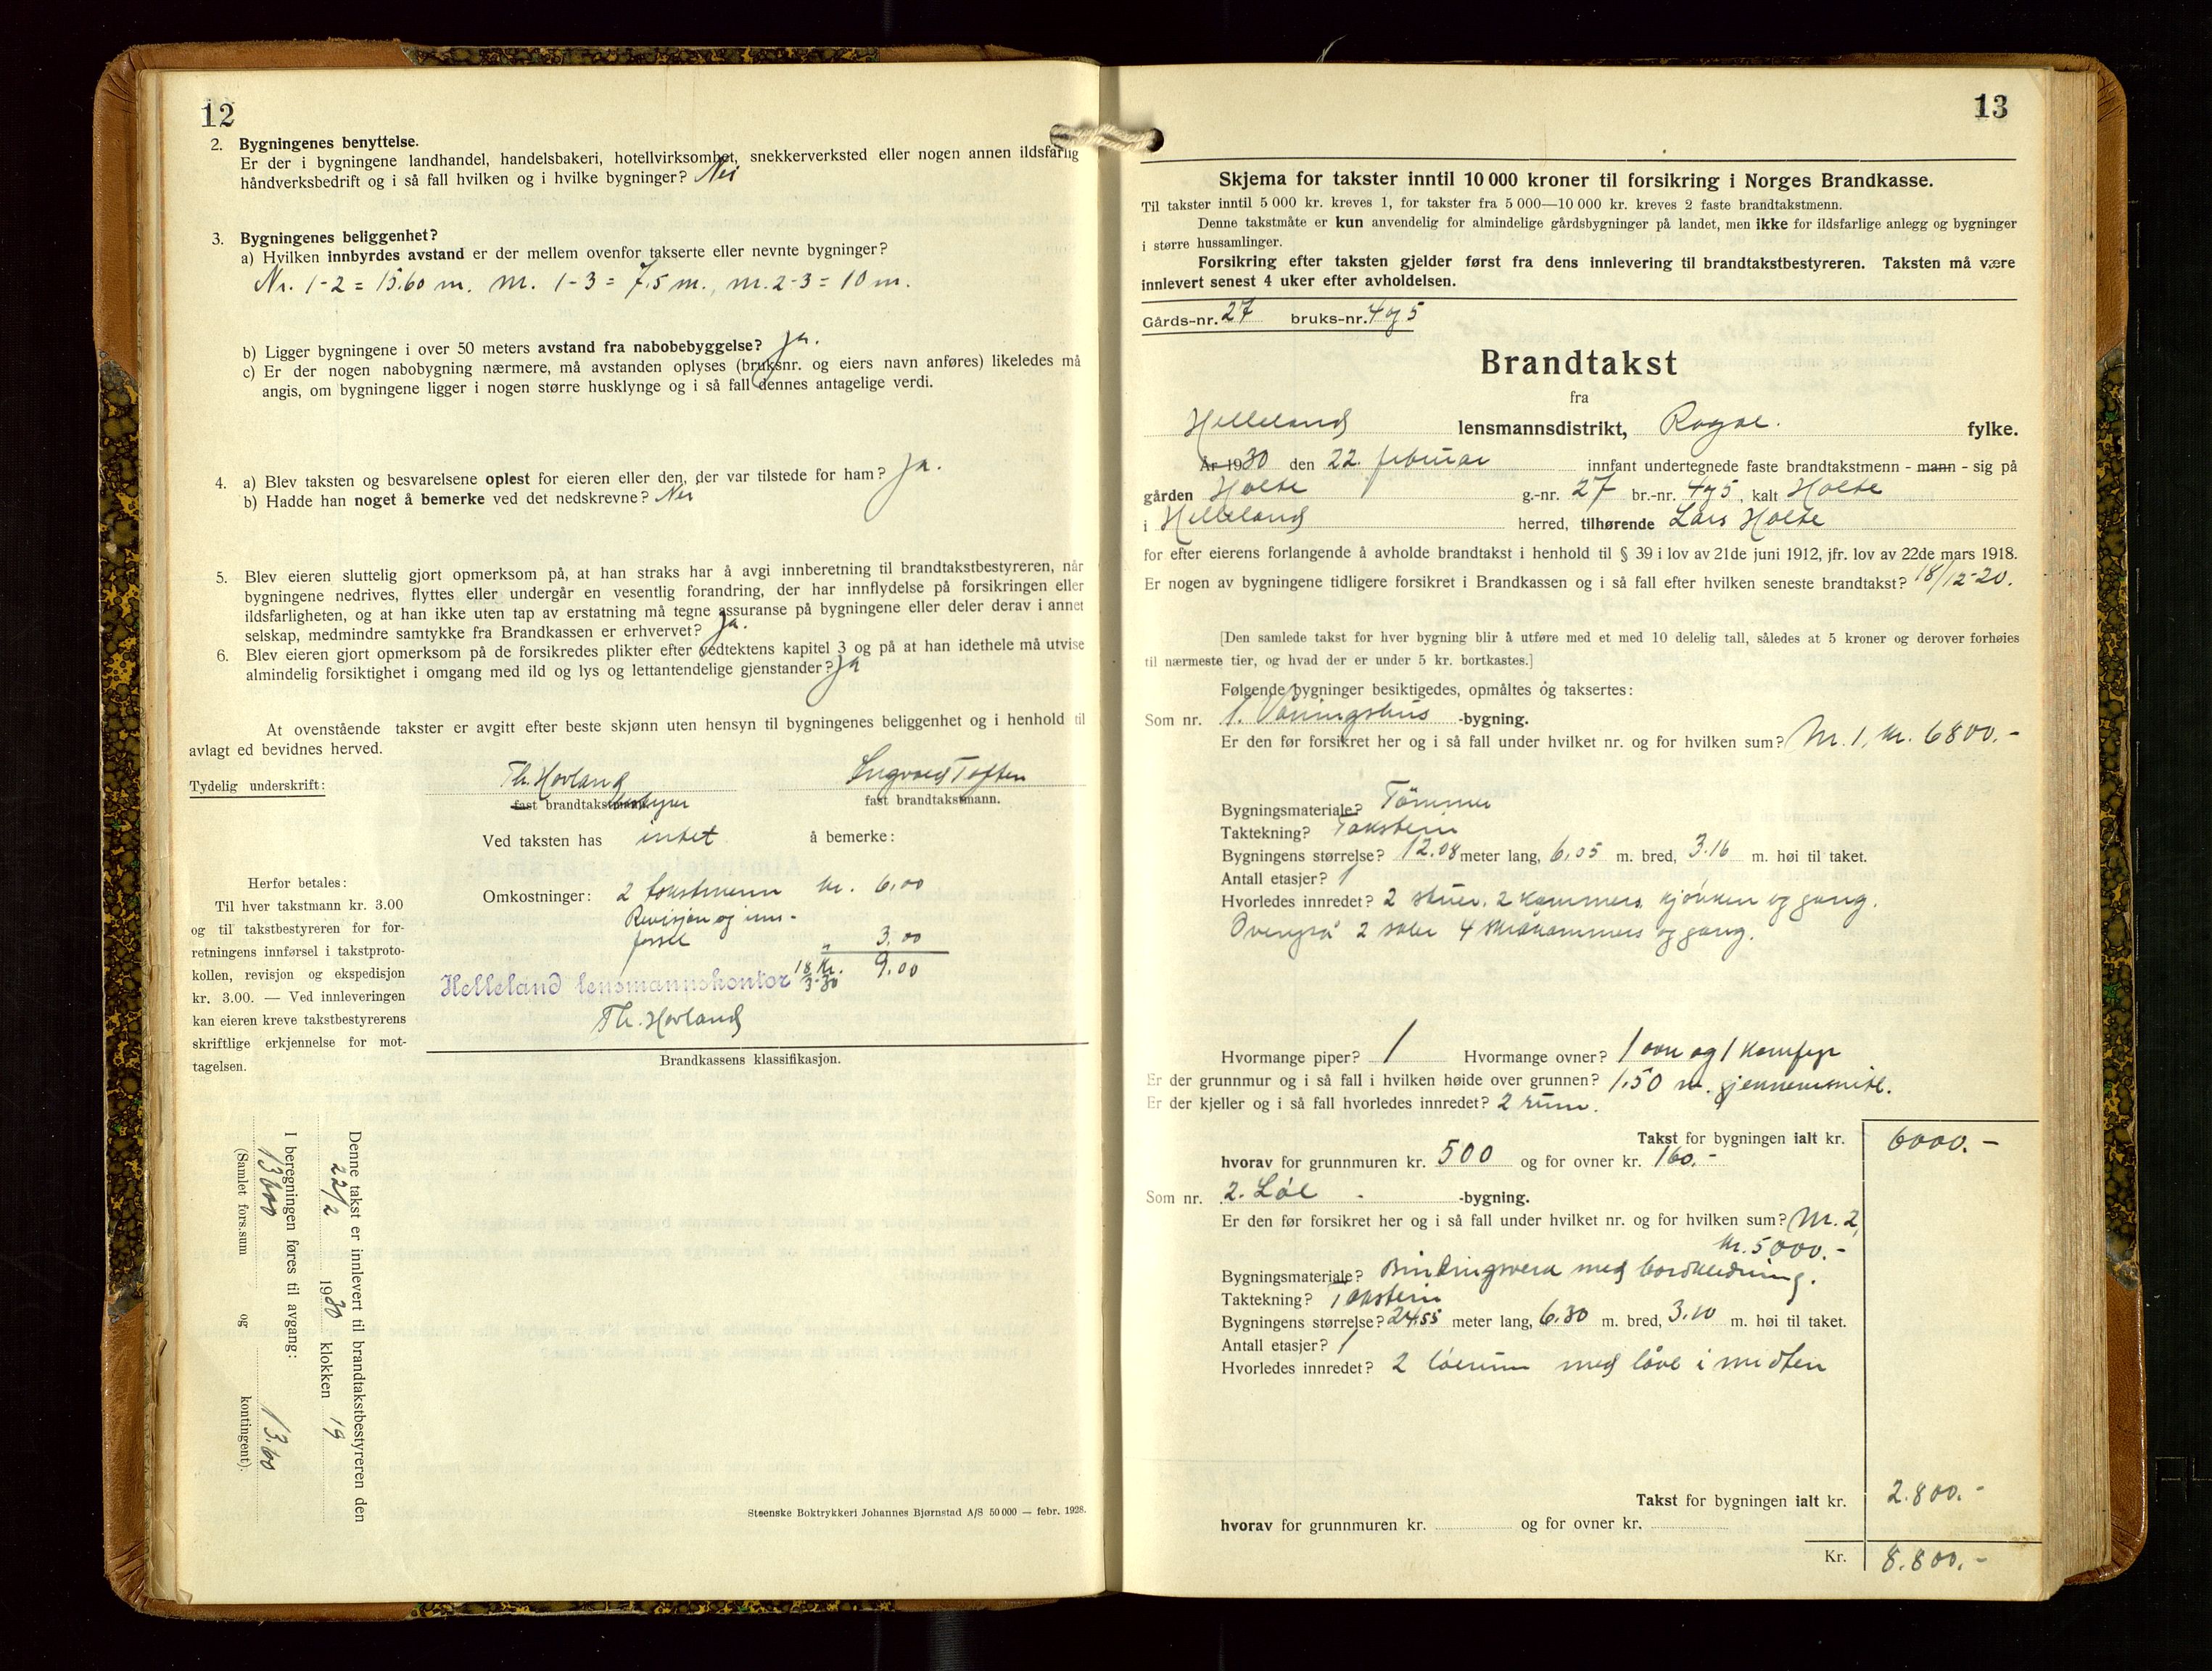 12
2. Bygningenes benyttelse.
Er der i bygningene landhandel, handelsbakeri, hotellvirksomhet, snekkerverksted eller nogen annen ildsfarlig
håndverksbedrift og i så fall hvilken og i hvilke bygninger? Nei
3. Bygningenes beliggenhet?
a) Hvilken innbyrdes avstand er der mellem ovenfor takserte eller nevnte bygninger?
Nr. 1-2 = 15.60 m. nr. 1-3 = 7.5 m., nr. 2-3 = 10 m.
b) Ligger bygningene i over 50 meters avstand fra nabobebyggelse? ja.
c) Er der nogen nabobygning nærmere, må avstanden oplyses (bruksnr. og eiers navn anføres) likeledes må
angis, om bygningene ligger i nogen større husklynge og i så fall dennes antagelige verdi.
4. a) Blev taksten og besvarelsene oplest for eieren eller den, der var tilstede for ham? ja.
b) Hadde han noget å bemerke ved det nedskrevne? Nei
5. Blev eieren sluttelig gjort opmerksom på, at han straks har å avgi innberetning til brandtakstbestyreren, når
bygningene nedrives, flyttes eller undergår en vesentlig forandring, der har innflydelse på forsikringen eller
ildsfarligheten, og at han ikke uten tap av erstatning må tegne assuranse på bygningene eller deler derav i annet
selskap, medmindre samtykke fra Brandkassen er erhvervet? ja.
6. Blev eieren gjort opmerksom på de forsikredes plikter efter vedtektens kapitel 3 og på at han idethele må utvise
almindelig forsiktighet i omgang med ild og lys og lettantendelige gjenstander? ja
At ovenstående takster er avgitt efter beste skjønn uten hensyn til bygningenes beliggenhet og i henhold til
avlagt ed bevidnes herved.
Tydelig underskrift: Th. Hovland Ingvald Toften
fast brandtakstbestyrer fast brandtakstmann.
Ved taksten has intet å bemerke:
Omkostninger: 2 takstmenn kr. 6.00
Revisjon og inn-
førsel " 3.00
Kr. 9.00
Helleland lensmannskontor 18/3-30
Th. Hovland
Herfor betales:
Til hver takstmann kr. 3.00
og til takstbestyreren for for-
retningens innførsel i takstproto-
kollen, revisjon og ekspedisjon
kr. 3.00. — Ved innleveringen
kan eieren kreve takstbestyrerens
skriftlige erkjennelse for mot-
tagelsen.
Brandkassens klassifikasjon.
Denne takst er innlevert til brandtakstbestyreren den
22/2 1930 klokken 19
I beregningen føres til avgang:
13600 13.60
(Samlet fors.sum og kontingent).
Steenske Boktrykkeri Johannes Bjørnstad A/S 50 000 — febr. 1928.
13
Skjema for takster inntil 10 000 kroner til forsikring i Norges Brandkasse.
Til takster inntil 5 000 kr. kreves 1, for takster fra 5 000—10 000 kr. kreves 2 faste brandtakstmenn.
Denne takstmåte er kun anvendelig for almindelige gårdsbygninger på landet, men ikke for ildsfarlige anlegg og bygninger
i større hussamlinger.
Forsikring efter taksten gjelder først fra dens innlevering til brandtakstbestyreren. Taksten må være
innlevert senest 4 uker efter avholdelsen.
Gårds-nr. 27 bruks-nr. 4 og 5
Brandtakst
fra
Helleland lensmannsdistrikt, Rogal. fylke.
År 1930 den 22. februar innfant undertegnede faste brandtakstmenn - mann - sig på
gården Holte g.-nr. 27 br.-nr. 4 og 5, kalt Holte
i Helleland herred, tilhørende Lars Holte
for efter eierens forlangende å avholde brandtakst i henhold til § 39 i lov av 21de juni 1912, jfr. lov av 22de mars 1918.
Er nogen av bygningene tidligere forsikret i Brandkassen og i så fall efter hvilken seneste brandtakst? 18/12-20.
[Den samlede takst for hver bygning blir å utføre med et med 10 delelig tall, således at 5 kroner og derover forhøies
til nærmeste tier, og hvad der er under 5 kr. bortkastes.]
Følgende bygninger besiktigedes, opmåltes og taksertes:
Som nr. 1. Våningshus -bygning.
Er den før forsikret her og i så fall under hvilket nr. og for hvilken sum? Nr. 1, kr. 6800.-
Bygningsmateriale? Tømmer
Taktekning? Takstein
Bygningens størrelse? 12.08 meter lang, 6.05 m. bred, 3.16 m. høi til taket.
Antall etasjer? 1
Hvorledes innredet? 2 stuer, 2 kammers, kjøkken og gang.
Ovenpå 2 saler 4 skråkammers og gang.
Hvormange piper? 1 Hvormange ovner? 1 ovn og 1 komfyr
Er der grunnmur og i så fall i hvilken høide over grunnen? 1.50 m. gjennemsnitl.
Er der kjeller og i så fall hvorledes innredet? 2 rum.
Takst for bygningen ialt kr. 6000.-
hvorav for grunnmuren kr. 500 og for ovner kr. 160.-
Som nr. 2. Løe -bygning.
Er den før forsikret her og i så fall under hvilket nr. og for hvilken sum? Nr. 2,
kr. 5000.-
Bygningsmateriale? Bindingsverk med bordkledning.
Taktekning? Takstein
Bygningens størrelse? 24.55 meter lang, 6.30 m. bred, 3.10 m. høi til taket.
Antall etasjer? 1
Hvorledes innredet? 2 løerum med låve i midten
Takst for bygningen ialt kr. 2.800.-
hvorav for grunnmuren kr. og for ovner kr.
Kr. 8.800.-